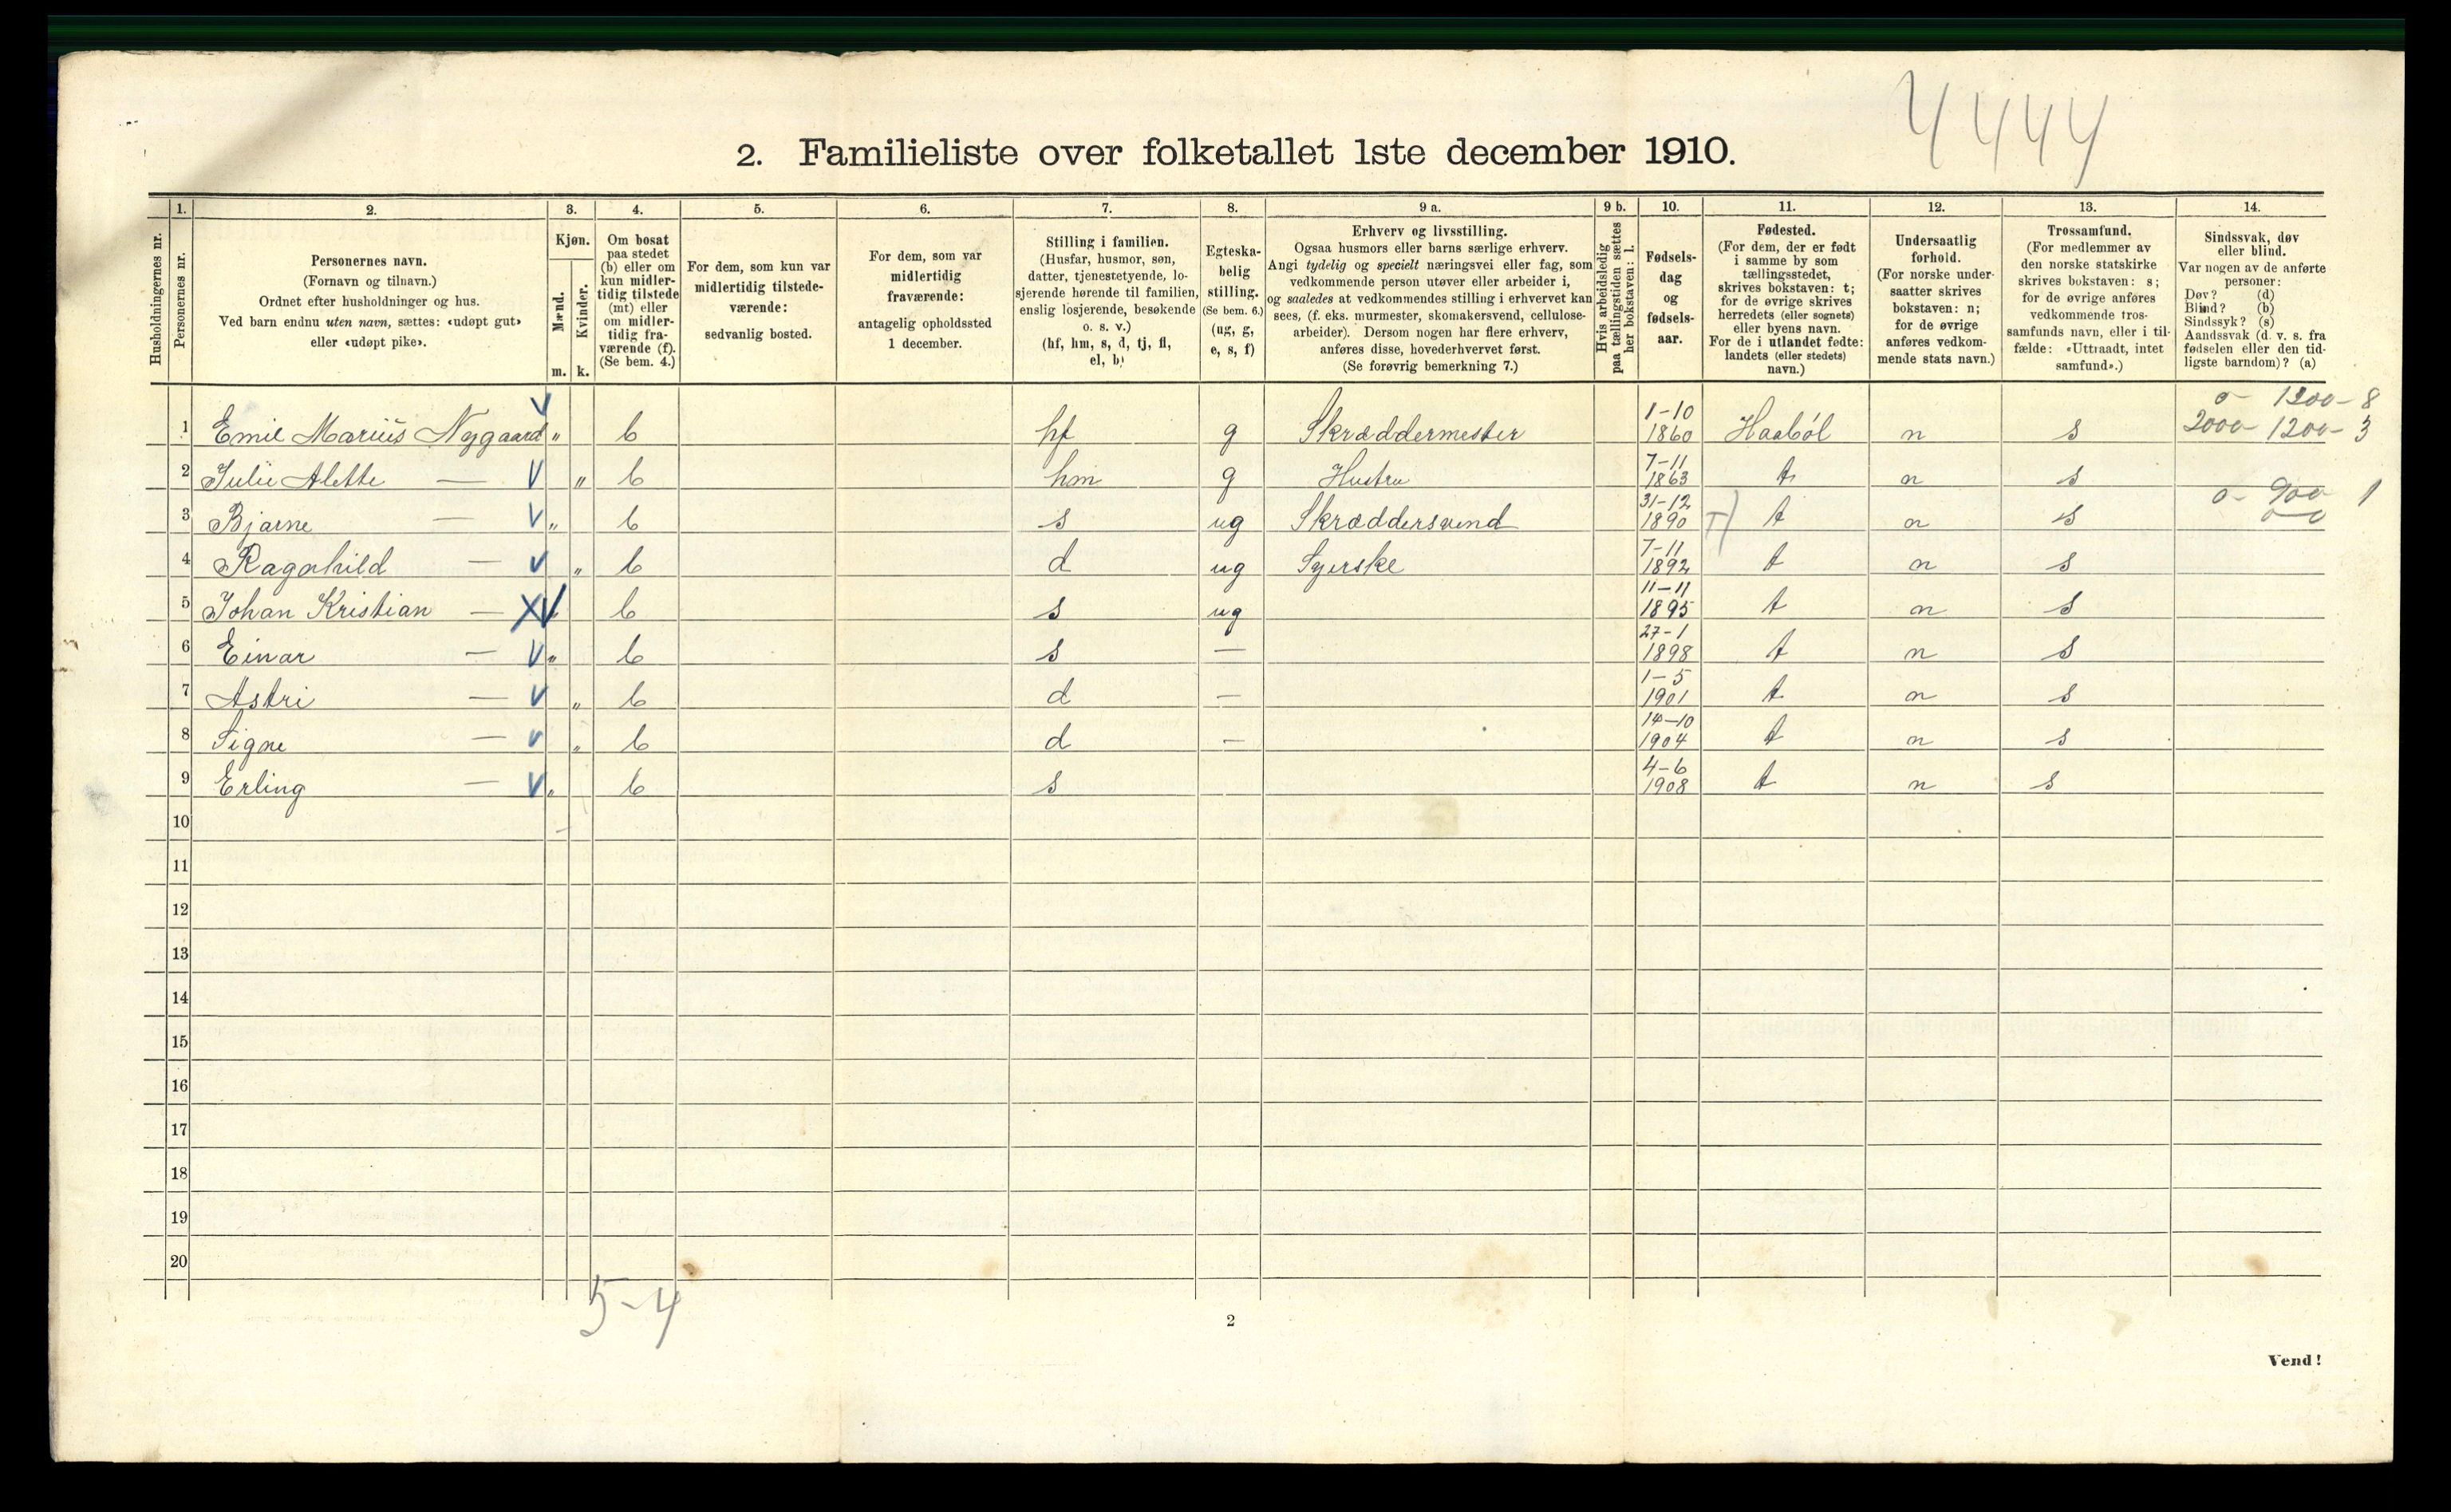 4444
2. Familieliste over folketallet 1ste december 1910.
Husholdningernes nr.
1. Personernes nr.
2. Personernes navn.
(Fornavn og tilnavn.)
Ordnet efter husholdninger og hus.
Ved barn endnu uten navn, sættes: «udøpt gut»
eller «udøpt pike».
3. Kjøn.
Mænd. m.
Kvinder. k.
4. Om bosat
paa stedet
(b) eller om
kun midler-
tidig tilstede
(mt) eller
om midler-
tidig fra-
værende (f).
(Se bem. 4.)
5. For dem, som kun var
midlertidig tilstede-
værende:
sedvanlig bosted.
6. For dem, som var
midlertidig
fraværende:
antagelig opholdssted
1 december.
7. Stilling i familien.
(Husfar, husmor, søn,
datter, tjenestetyende, lo-
sjerende hørende til familien,
enslig losjerende, besøkende
o. s. v.)
(hf, hm, s, d, tj, fl,
el, b)
8. Egteska-
belig
stilling.
(Se bem. 6.)
(ug, g,
e, s, f)
9 a. Erhverv og livsstilling.
Ogsaa husmors eller barns særlige erhverv.
Angi tydelig og specielt næringsvei eller fag, som
vedkommende person utøver eller arbeider i,
og saaledes at vedkommendes stilling i erhvervet kan
sees, (f. eks. murmester, skomakersvend, cellulose-
arbeider). Dersom nogen har flere erhverv,
anføres disse, hovederhvervet først.
(Se forøvrig bemerkning 7.)
9 b. Hvis arbeidsledig
paa tællingstiden sættes
her bokstaven: l.
10. Fødsels-
dag
og
fødsels-
aar.
11. Fødested.
(For dem, der er født
i samme by som
tællingsstedet,
skrives bokstaven: t;
for de øvrige skrives
herredets (eller sognets)
eller byens navn.
For de i utlandet fødte:
landets (eller stedets)
navn.)
12. Undersaatlig
forhold.
(For norske under-
saatter skrives
bokstaven: n;
for de øvrige
anføres vedkom-
mende stats navn.)
13. Trossamfund.
(For medlemmer av
den norske statskirke
skrives bokstaven: s;
for de øvrige anføres
vedkommende tros-
samfunds navn, eller i til-
fælde: «Uttraadt, intet
samfund».)
14. Sindssvak, døv
eller blind.
Var nogen av de anførte
personer:
Døv? (d)
Blind? (b)
Sindssyk? (s)
Aandssvak (d. v. s. fra
fødselen eller den tid-
ligste barndom)? (a)
1 Emil Marius Nygaard " b hf g Skræddermester 1-10 1860 Haabøl n s 2000- 1200- 3
2 Julie Alette — " b hm g Hustru 7-11 1863 t n s
3 Bjarne — " b s ug Skræddersvend 31-12 1890 t n s 0- 900- 1
4 Ragnhild — " b d ug Syerske 7-11 1892 t n s
5 Johan Kristian — b s ug 11-11 1895 t n s
6 Einar — " b s — 27-1 1898 t n s
7 Astri — " b d — 1-5 1901 t n s
8 Signe — " b d — 14-10 1904 t n s
9 Erling — " b s 4-6 1908 t n s
10
11
12
13
14
15
16
17
18
19
20
5-4
2
Vend!